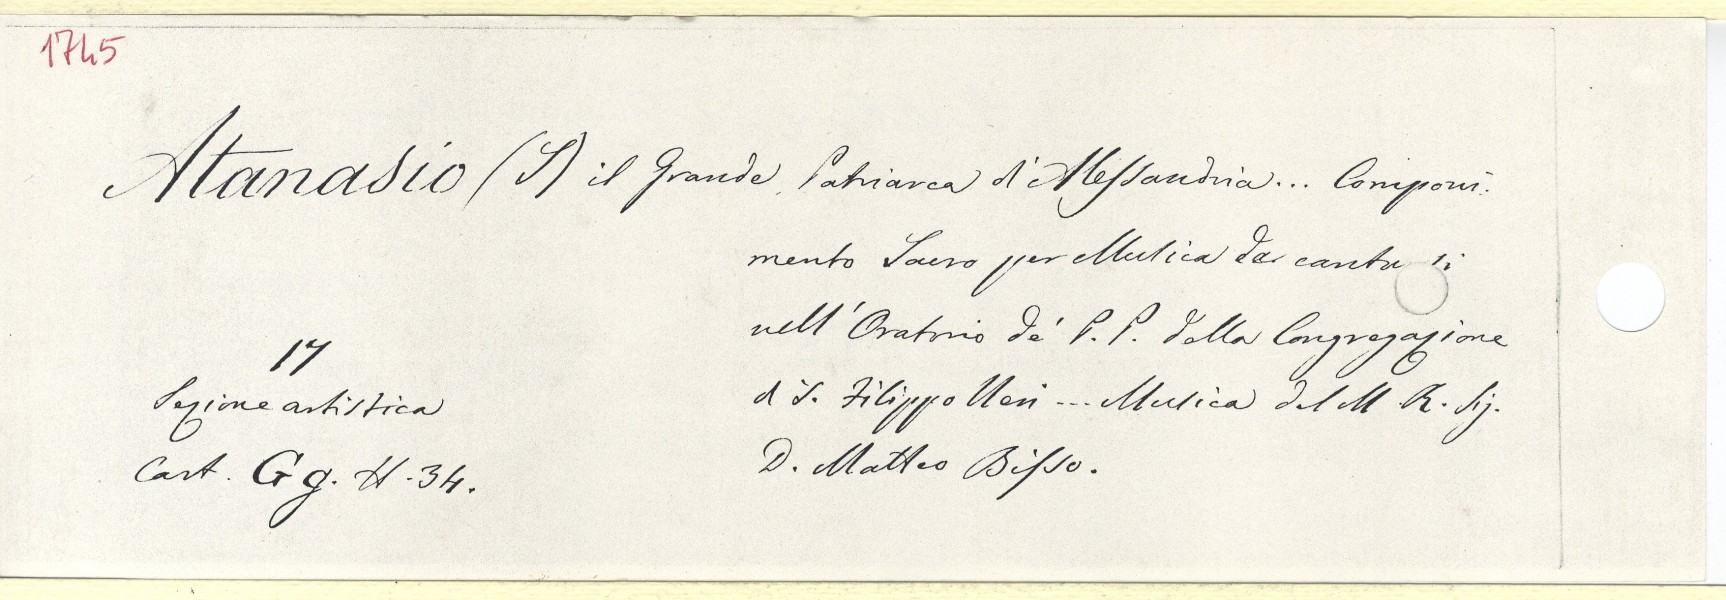 1745
Atanasio (S) il Grande Patriarca di Alessandria... Componi-
mento Sacro per Musica da cantarsi
nell' Oratorio de' P. P. della Congregazione
di S. Filippo Neri --- Musica del M. R. Sig.
D. Matteo Bisso.
17
Sezione artistica
Cart. Gg. H. 34.